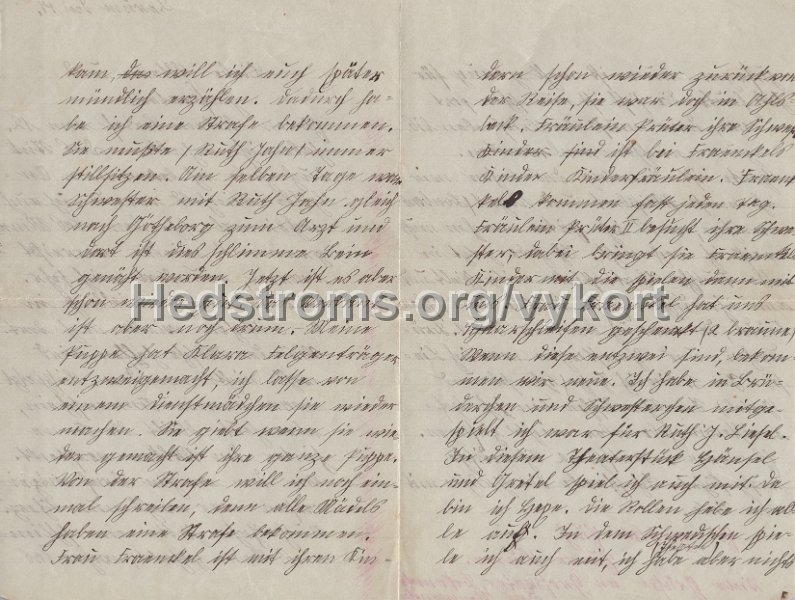 kam, das will ich euch später
mündlich erzählen. Dadurch ha-
be ich eine Strafe bekommen.
Sie mußte (Ruth Jahn) immer
stillsitzen. Am selben Tage war
Schwester mit Ruth Jahn gleich
nach Götheborg zum Arzt und
dort ist das schlimme Bein
genäht worden. Jetzt ist es aber
schon
ist aber noch krum. Meine
Puppe hat Klara Felgenträger
entzweigemacht, ich lasse von
einem Dienstmädchen sie wieder
machen. Sie giebt wenn sie wie
der gemacht ist ihre ganze Puppe.
Von der Strafe will ich noch ein-
mal schreiben, denn alle Mädels
haben eine Strafe bekommen.
Frau Fraenkel ist mit ihren Kin-
dern schon wieder zurück von
der Reise, sie war doch in Ahls-
beck. Fräulein Prüter ihre Schwes
Kinder sind ist bei Fraenkels
Kinder Kinderfräulein. Fraen
kels kommen fast jeden Tag.
Fräulein Prüter II besucht ihre Schwe
ster, dabei bringt sie Fraenkels
Kinder mit die spielen dann mit
hat uns
Haarschleifen geschenkt (2 braune)
Wenn diese entzwei sind, bekom-
men wir neue. Ich habe in Brü-
derchen und Schwesterchen mitge-
spielt ich war für Ruth J. Liesel.
In diesem Theaterstück Hänsel
und Gretel spiel ich auch mit. da
bin ich Hexe. Die Rollen habe ich al
le auf. In dem Schwedischen spie-
le ich auch mit, ich habe aber nichts
Hedstroms.org/vykort